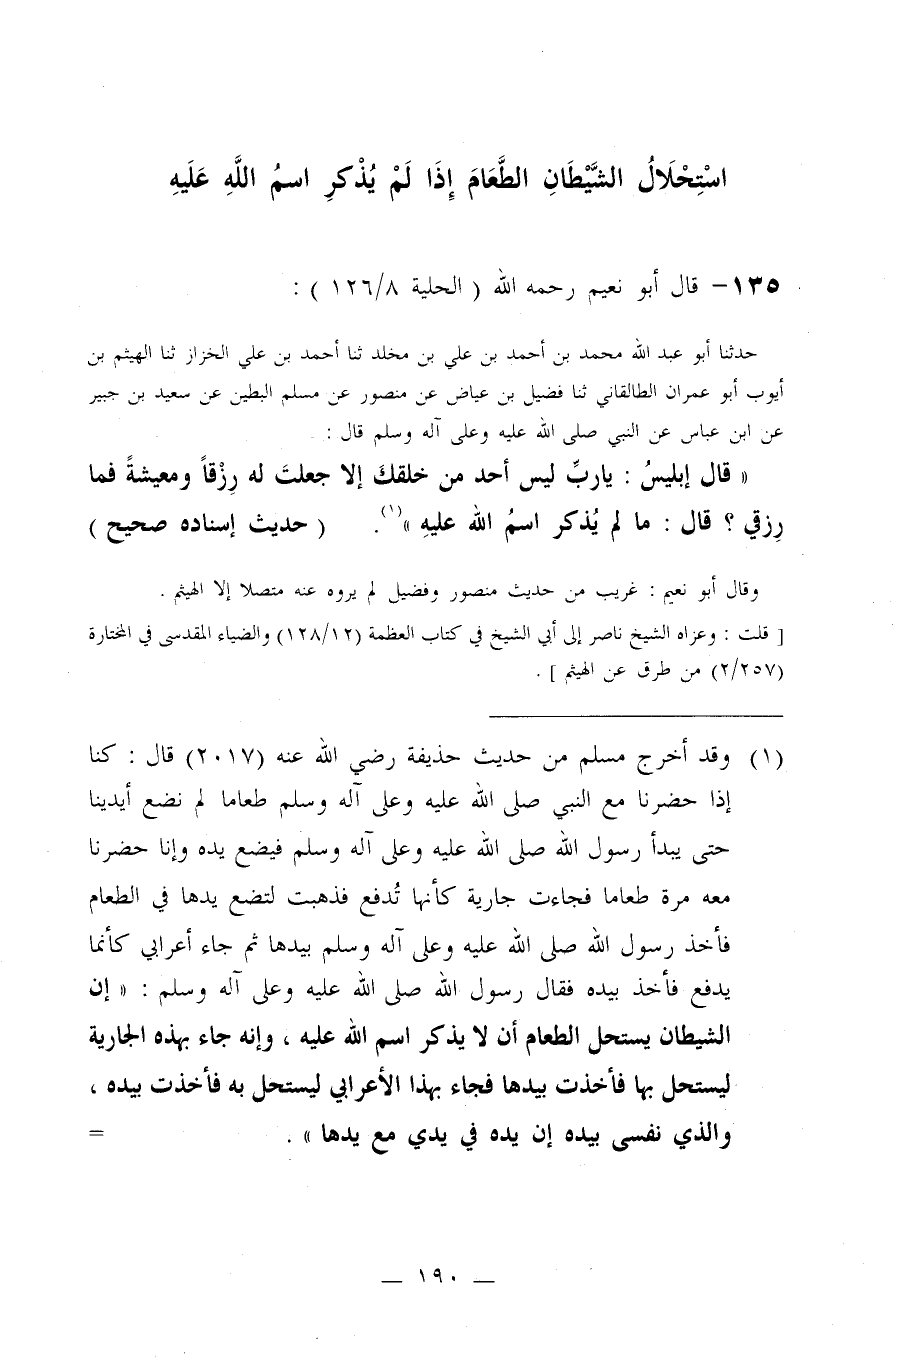 اسْتِحْلَالُ الشَّيْطَانِ الطَّعَامَ إِذَا لَمْ يُذْكرِ اسمُ اللَّهِ عَلَيهِ
١٣٥ – قال أبو نعيم رحمه الله ( الحلية ١٢٦/٨ ) :
حدثنا أبو عبد الله محمد بن أحمد بن علي بن مخلد ثنا أحمد بن علي الخزاز ثنا الهيثم بن
أيوب أبو عمران الطالقاني ثنا فضيل بن عياض عن منصور عن مسلم البطين عن سعيد بن جبير
عن ابن عباس عن النبي صلى الله عليه وعلى آله وسلم قال :
« قال إبليسُ : ياربِّ ليس أحد من خلقكَ إلا جعلتَ له رِزْقاً ومعيشةً فما
رِزقي ؟ قال : ما لم يُذكر اسمُ الله عليهِ »(١). ( حديث إسناده صحيح )
وقال أبو نعيم : غريب من حديث منصور وفضيل لم يروه عنه متصلا إلا الهيثم .
[ قلت : وعزاه الشيخ ناصر إلى أبي الشيخ في كتاب العظمة (١٢٨/١٢) والضياء المقدسى في المختارة
(٢/٢٥٧) من طرق عن الهيثم ] .
(١) وقد أخرج مسلم من حديث حذيفة رضي الله عنه (٢٠١٧) قال : كنا
إذا حضرنا مع النبي صلى الله عليه وعلى آله وسلم طعاما لم نضع أيدينا
حتى يبدأ رسول الله صلى الله عليه وعلى آله وسلم فيضع يده وإنا حضرنا
معه مرة طعاما فجاءت جارية كأنها تُدفع فذهبت لتضع يدها في الطعام
فأخذ رسول الله صلى الله عليه وعلى آله وسلم بيدها ثم جاء أعرابي كأنما
يدفع فأخذ بيده فقال رسول الله صلى الله عليه وعلى آله وسلم : « إن
الشيطان يستحل الطعام أن لا يذكر اسم الله عليه ، وإنه جاء بهذه الجارية
ليستحل بها فأخذت بيدها فجاء بهذا الأعرابي ليستحل به فأخذت بيده ،
والذي نفسى بيده إن يده في يدي مع يدها » . =
— ١٩٠ —